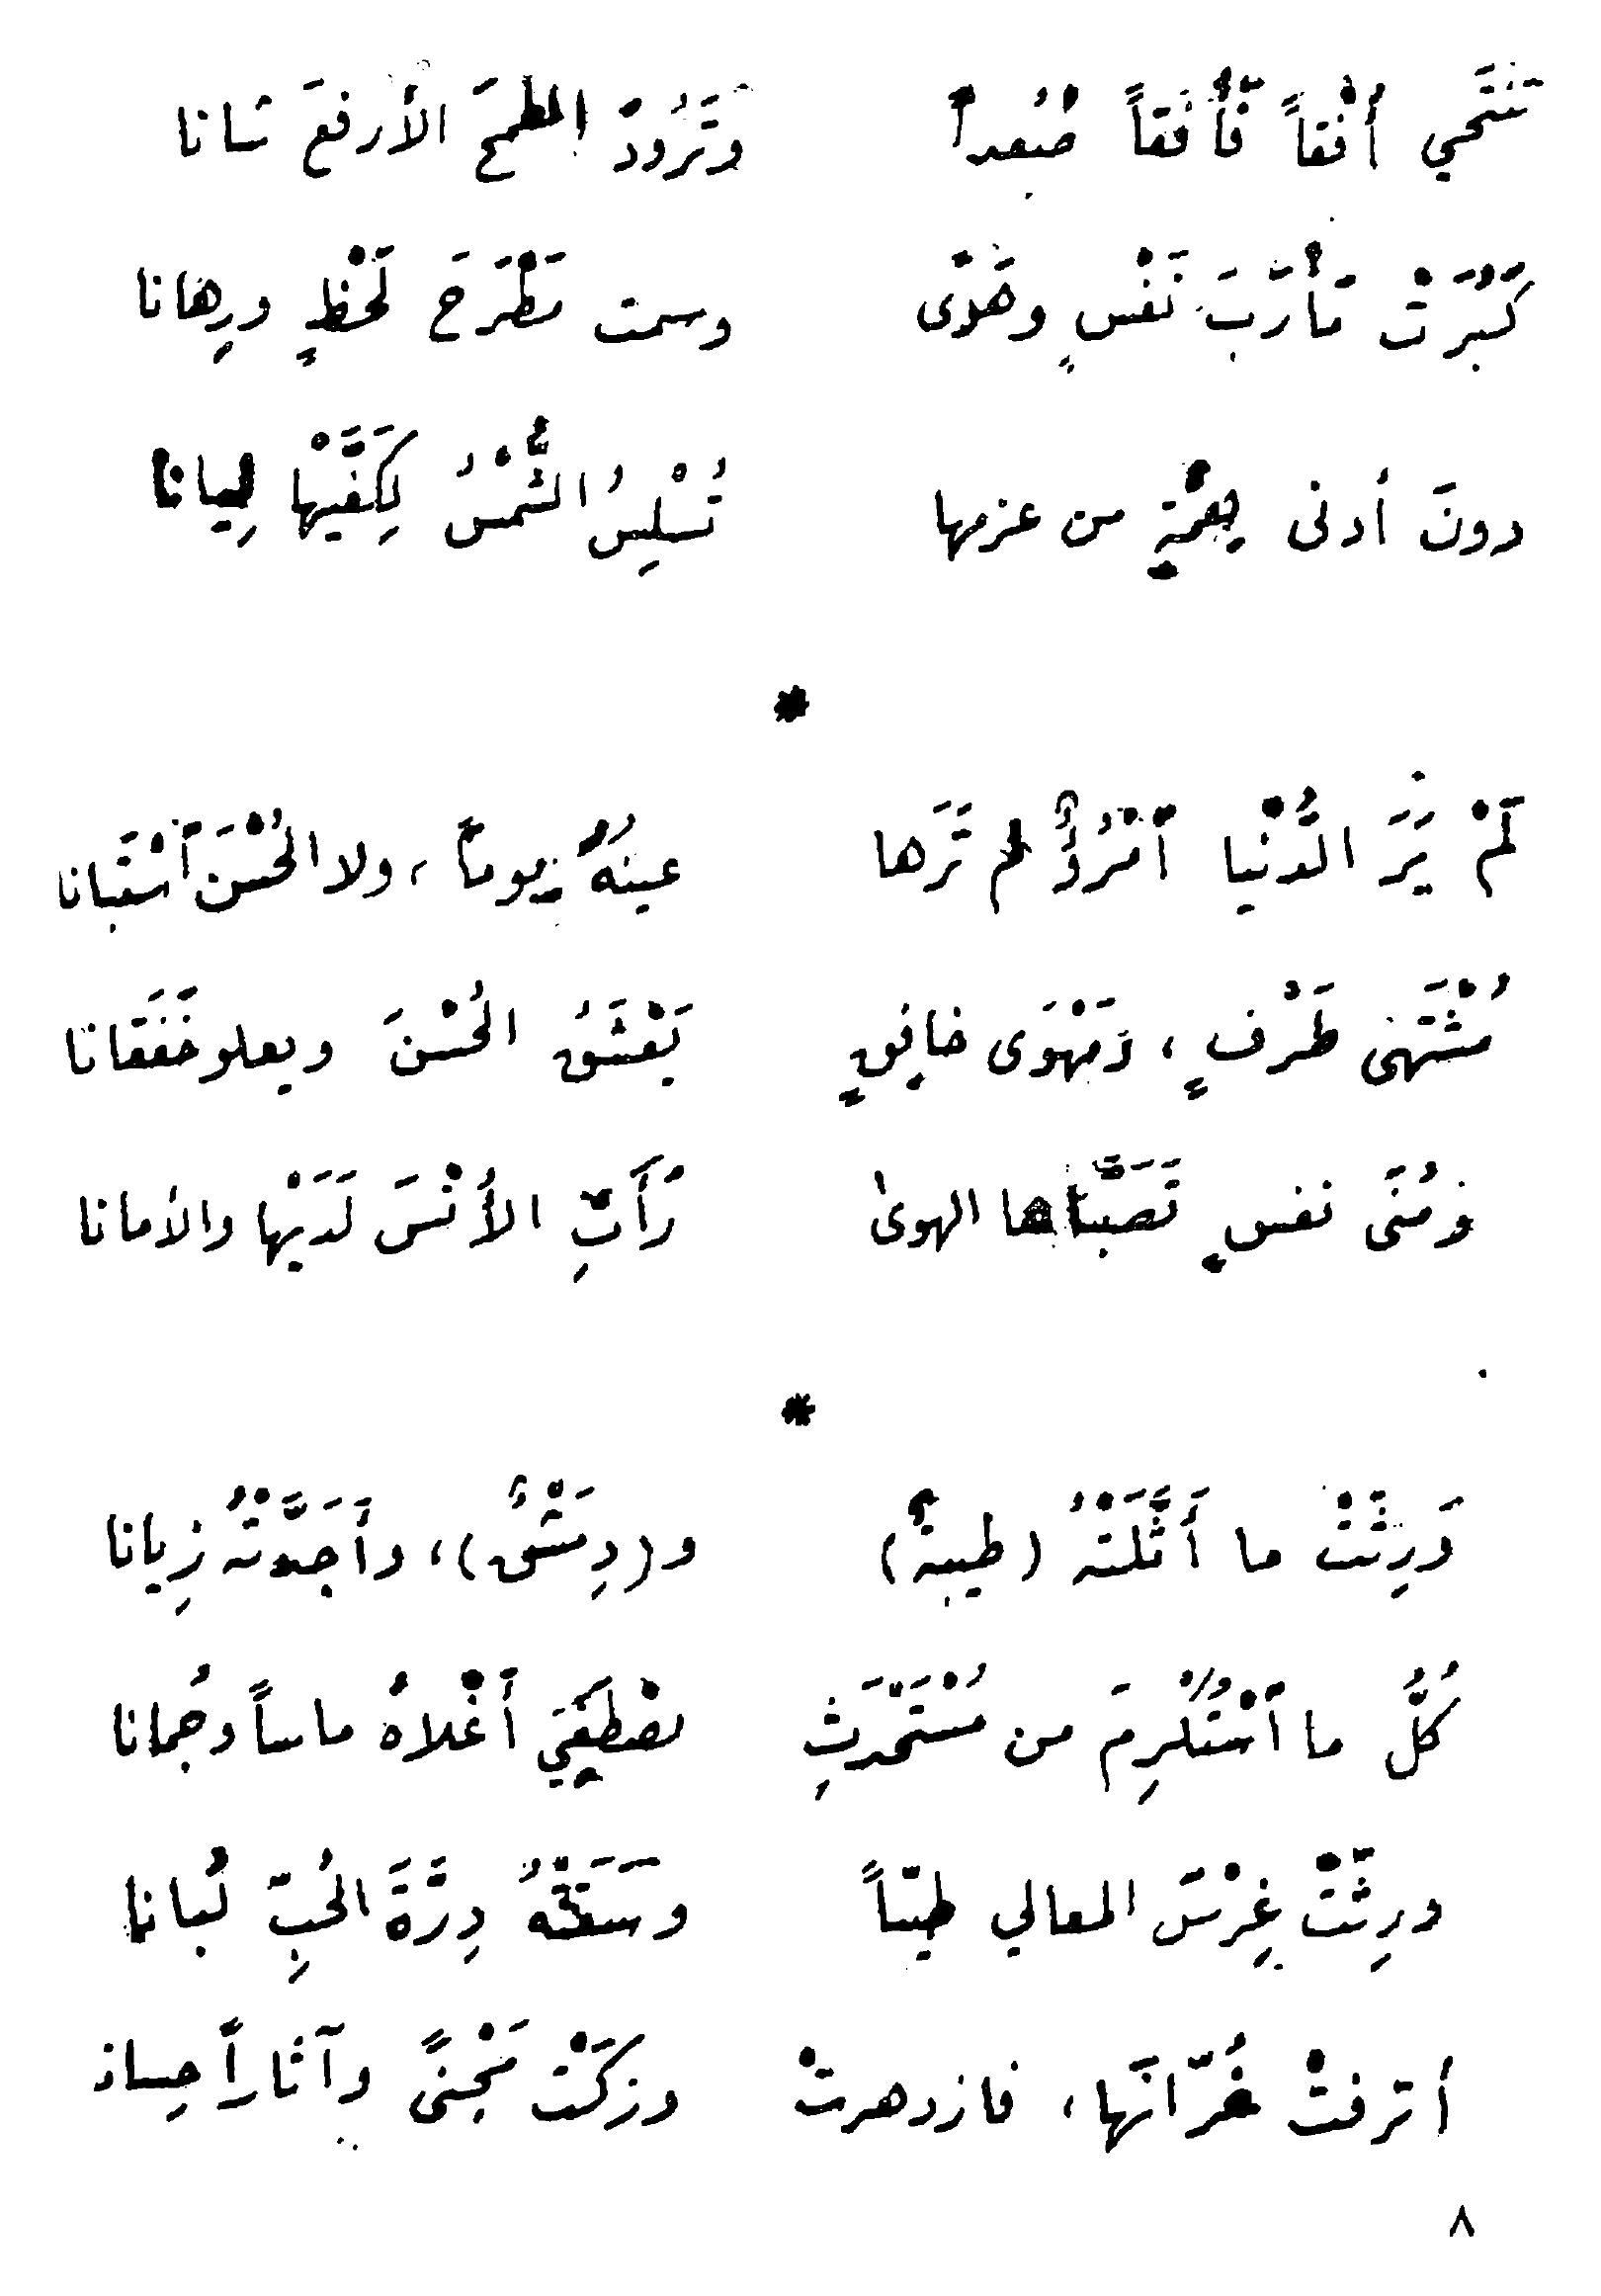 تنتَحي أُفْقاً فأُفْقاً صُعداً وتَرُودُ المطمحَ الأرفعَ شانا
كَبُرَتْ مَأرَبَ نَفْسٍ وهَوًى وسمت مَطْرَحَ لَحْظٍ ورِهانا
دونَ أدنى هِمّةٍ من عزمها تُسْلِسُ الشَّمْسُ لِكَفَّيْها لِيانا
*
لَمْ يَرَ الدُّنْيا ٱمْرُؤٌ لم تَرَها عينُهُ يوماً، ولا الحُسْنَ ٱسْتَبانا
مُشْتَهى طَرْفٍ، وَمَهْوَى خافِقٍ يَعْشَقُ الحُسْنَ ويعلو خَفَقانا
ومُنَى نفسٍ تَصَبَّاها الهوىٰ رَأَتِ الأُنْسَ لَدَيْها والأمانا
*
وَرِثَتْ ما أَثَّلَتْهُ (طيبةٌ) و(دِمَشْقٌ)، وأَجَدَّتْهُ زِيانا
كُلَّ ما ٱسْتُكْرِمَ من مُسْتَحْدَثٍ تصْطَفِي أَغْلاهُ ماساً وجُمانا
ورِثَتْ غِرْسَ المعالي طيّباً وسَقَتْهُ دِرَّةَ الحُبِّ لُبانا
أترفتْ خُرّاتَها، فازدهرتْ وزكَتْ مَجْنىً وآثاراً حِسانـ
٨